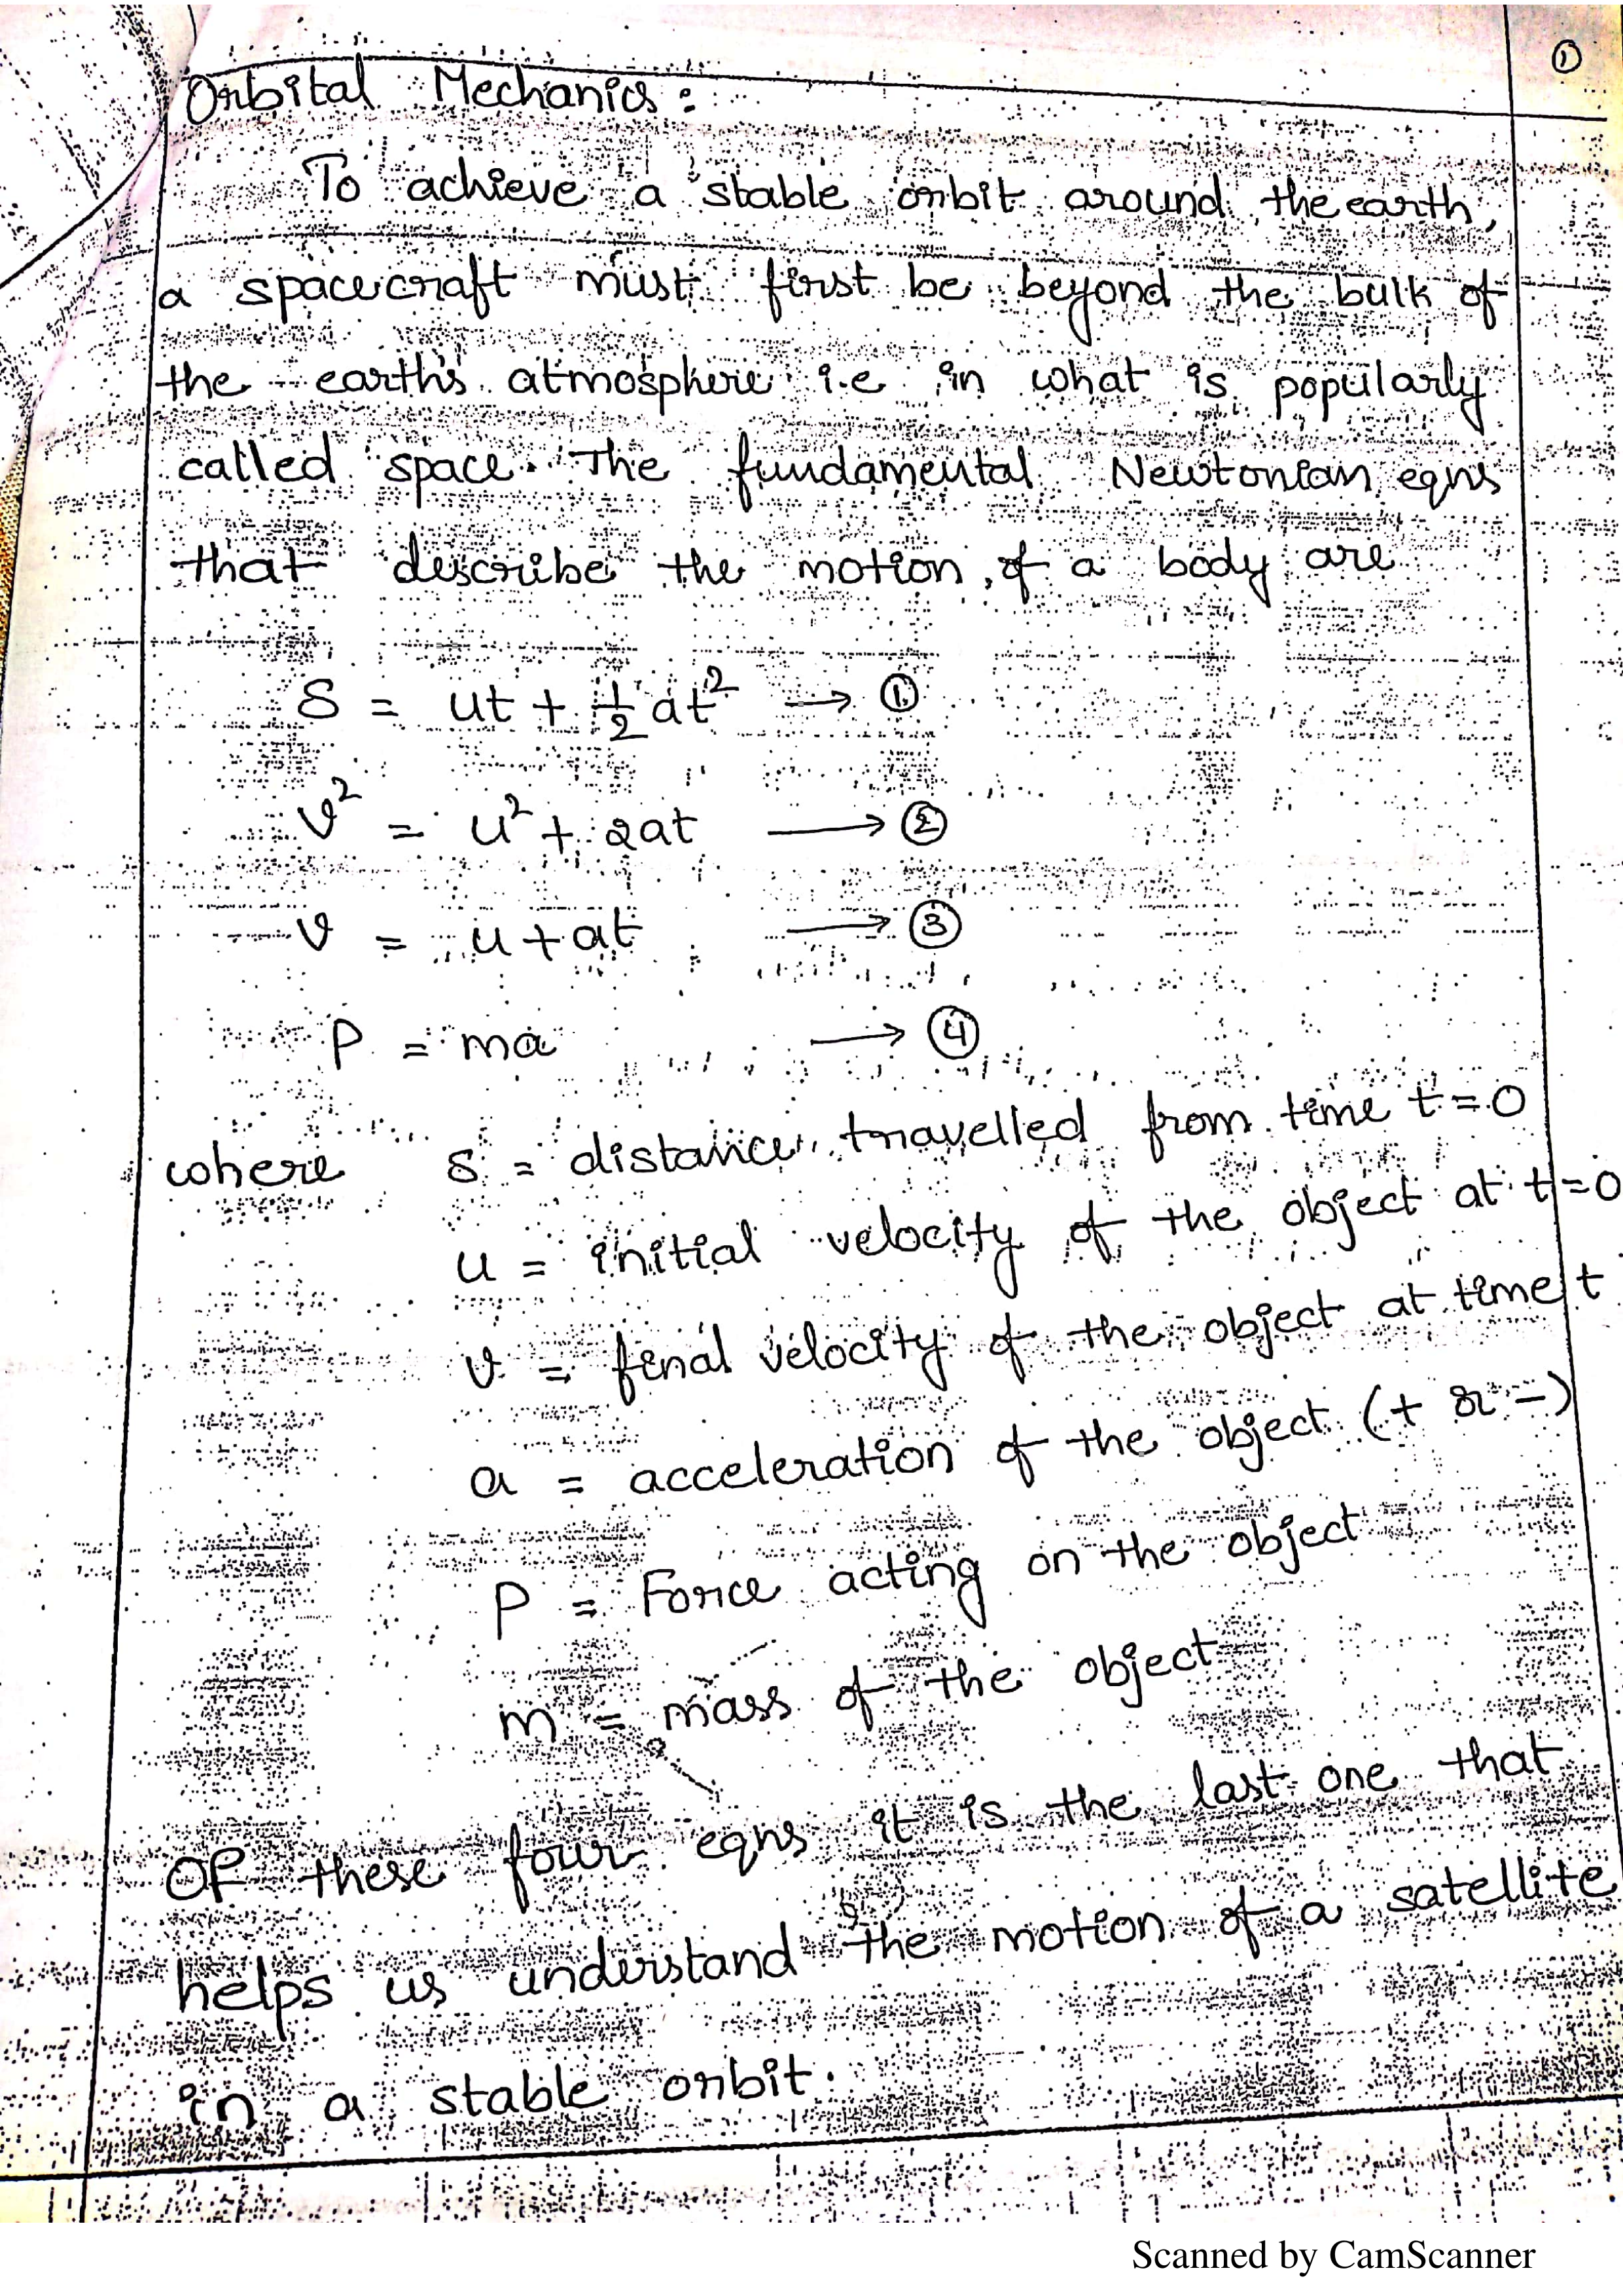 ①
Orbital Mechanics :
To achieve a stable orbit around the earth,
a spacecraft must first be beyond the bulk of
the earth's atmosphere i.e in what is popularly
called space. The fundamental Newtonian eqns
that describe the motion of a body are
S = ut + 1/2 at² → ①
v² = u² + 2at → ②
v = u + at → ③
P = ma → ④
where s = distance travelled from time t=0
u = initial velocity of the object at t=0
v = final velocity of the object at time t
a = acceleration of the object (+ or -)
P = Force acting on the object
m = mass of the object
Of these four eqns it is the last one that
helps us understand the motion of a satellite
in a stable orbit.
Scanned by CamScanner